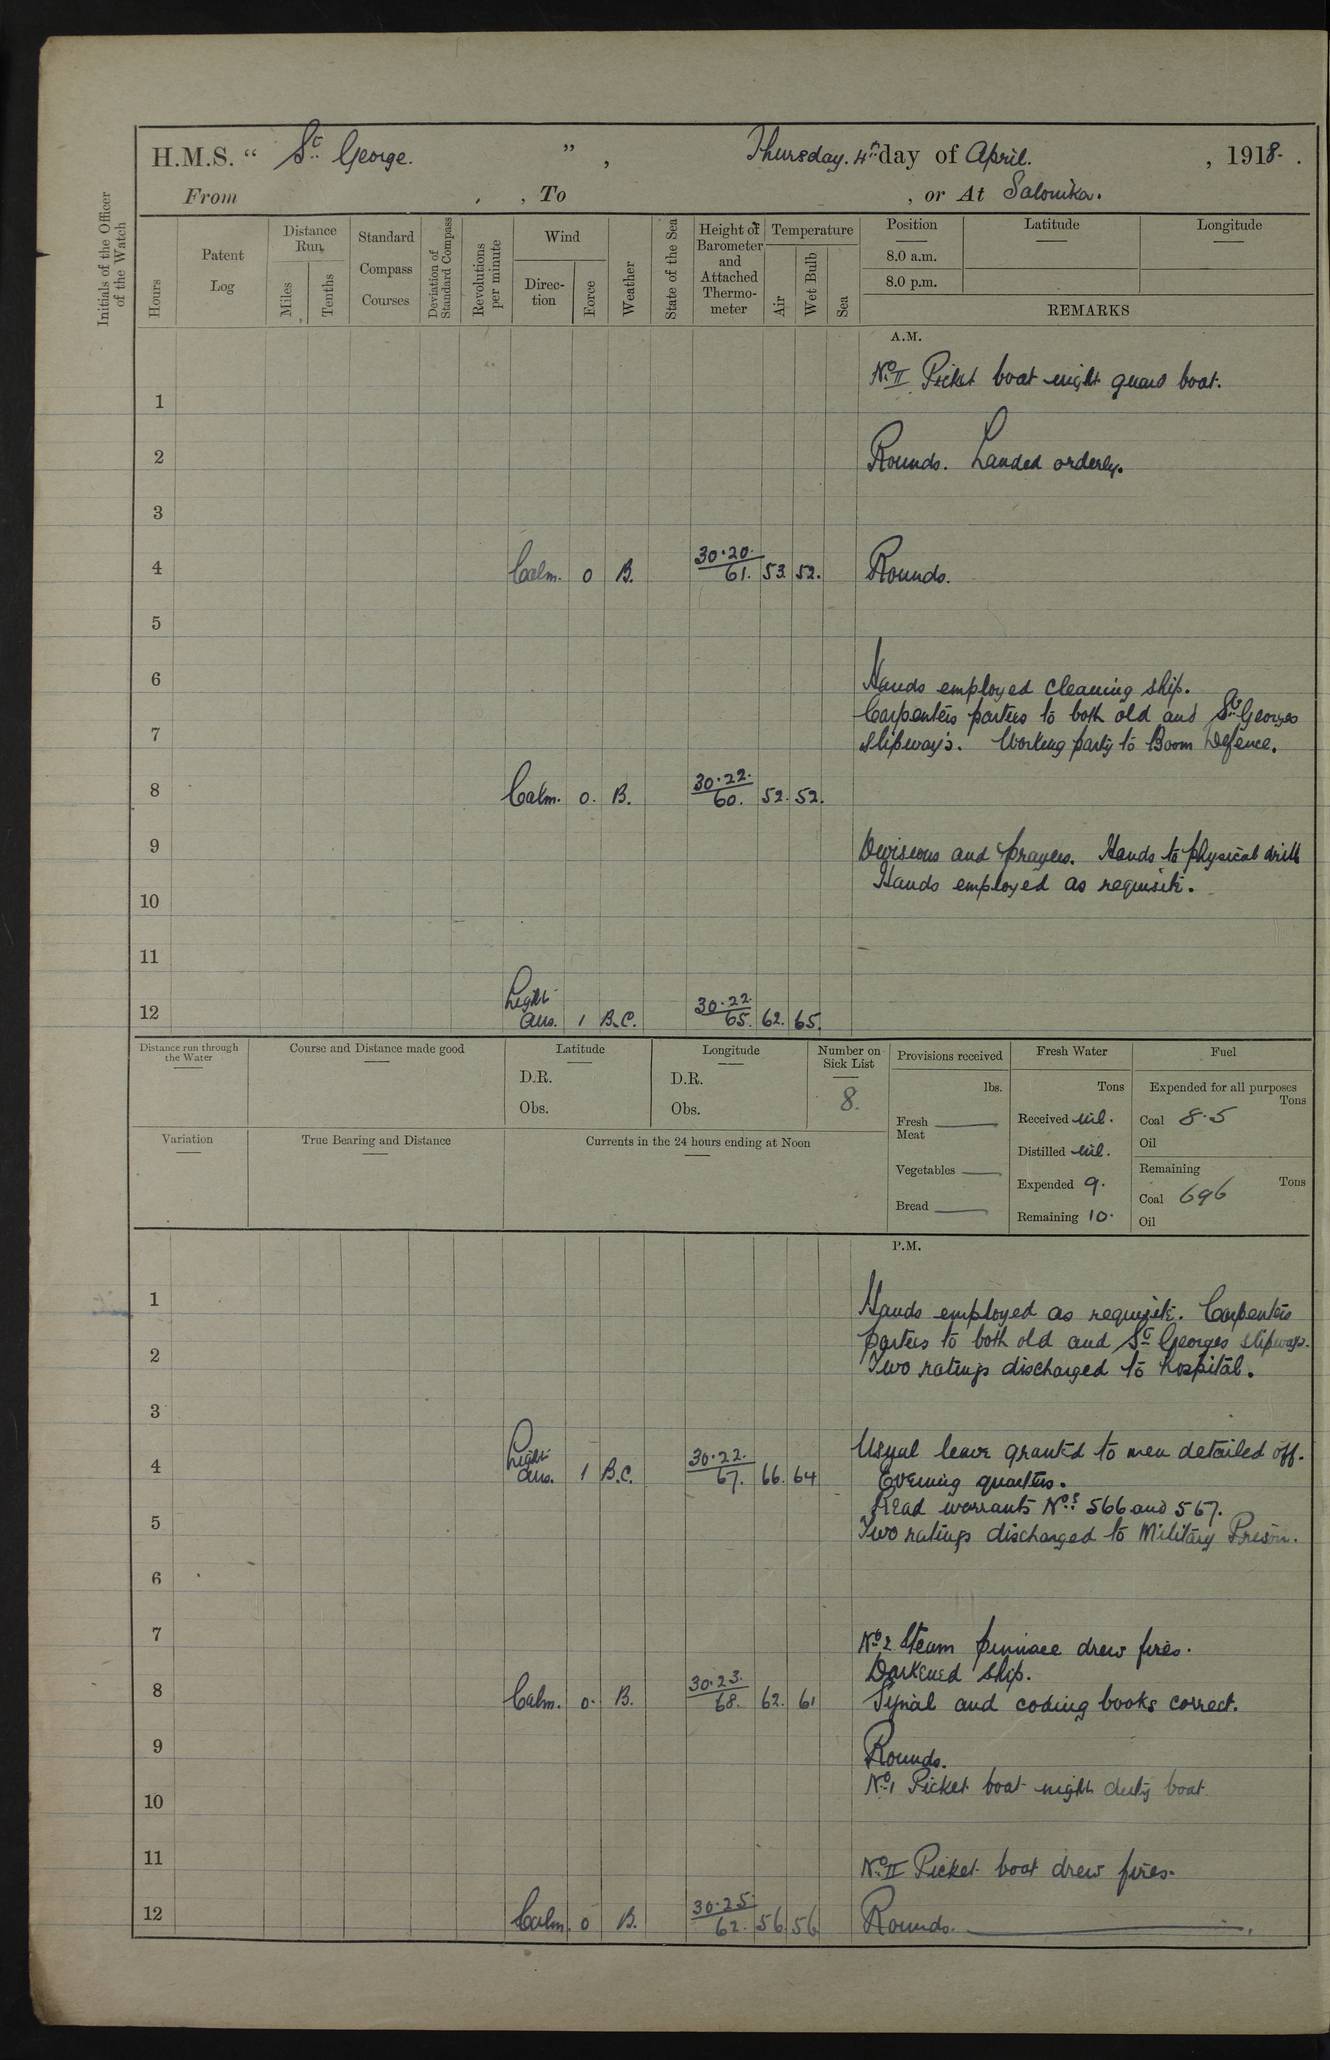 H.M.S. “ St. George. ” , Thursday. 4th day of April. , 1918 .
From , To , or At Salonika.
Initials of the Officer of the Watch
Hours
Patent Log
Distance Run
Miles
Tenths
Standard Compass Courses
Deviation of Standard Compass
Revolutions per minute
Wind
Direction
Force
Weather
State of the Sea
Height of Barometer and Attached Thermometer
Temperature
Air
Wet Bulb
Sea
Position
Latitude
Longitude
8.0 a.m.
8.0 p.m.
REMARKS
A.M.
No. II Picket boat night guard boat.
1
2 Rounds. Landed orderly.
3
4 Calm. 0 B. 30.20. 61. 53 52. Rounds.
5
6 Hands employed cleaning ship.
Carpenters parties to both old and St. Georges
7 slipway's. Working party to Boom Defence.
8 Calm. 0. B. 30.22. 60. 52. 52.
9 Divisions and prayers. Hands to physical drill
Hands employed as requisite.
10
11
12 Light airs. 1 B.C. 30.22. 65. 62. 65.
Distance run through the Water
Course and Distance made good
Latitude
D.R.
Obs.
Longitude
D.R.
Obs.
Number on Sick List
8.
Provisions received
lbs.
Fresh Meat
Vegetables
Bread
Fresh Water
Tons
Received nil.
Distilled nil.
Expended 9.
Remaining 10.
Fuel
Expended for all purposes
Tons
Coal 8.5
Oil
Remaining
Tons
Coal 696
Oil
Variation
True Bearing and Distance
Currents in the 24 hours ending at Noon
P.M.
1 Hands employed as requisite. Carpenters
parties to both old and St. Georges slipways.
2 Two ratings discharged to hospital.
3
Usual leave granted to men detailed off.
4 Light airs. 1 B.C. 30.22. 67. 66. 64 Evening quarters.
Read warrants Nos. 566 and 567.
5 Two ratings discharged to Military Prison.
6
7 No. 2 Steam pinnace drew fires.
Darkened ship.
8 Calm. 0. B. 30.23. 68. 62. 61 Signal and coding books correct.
9 Rounds.
No. 1 Picket boat night duty boat
10
11 No. II Picket boat drew fires.
12 Calm. 0 B. 30.25. 62. 56 56 Rounds.